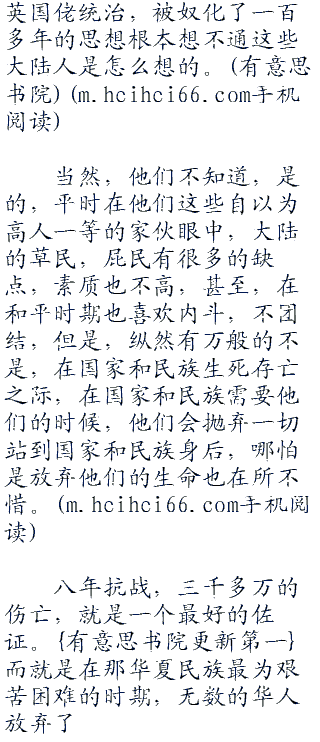 英国佬统治，被奴化了一百
多年的思想根本想不通这些
大陆人是怎么想的。(有意思
书院)(m.hcihci66.com手机
阅读)
当然，他们不知道，是
的，平时在他们这些自以为
高人一等的家伙眼中，大陆
的草民，屁民有很多的缺
点，素质也不高，甚至，在
和平时期也喜欢内斗，不团
结，但是，纵然有万般的不
是，在国家和民族生死存亡
之际，在国家和民族需要他
们的时候，他们会抛弃一切
站到国家和民族身后，哪怕
是放弃他们的生命也在所不
惜。(m.hcihci66.com手机阅
读)
八年抗战，三千多万的
伤亡，就是一个最好的佐
证。{有意思书院更新第一}
而就是在那华夏民族最为艰
苦困难的时期，无数的华人
放弃了